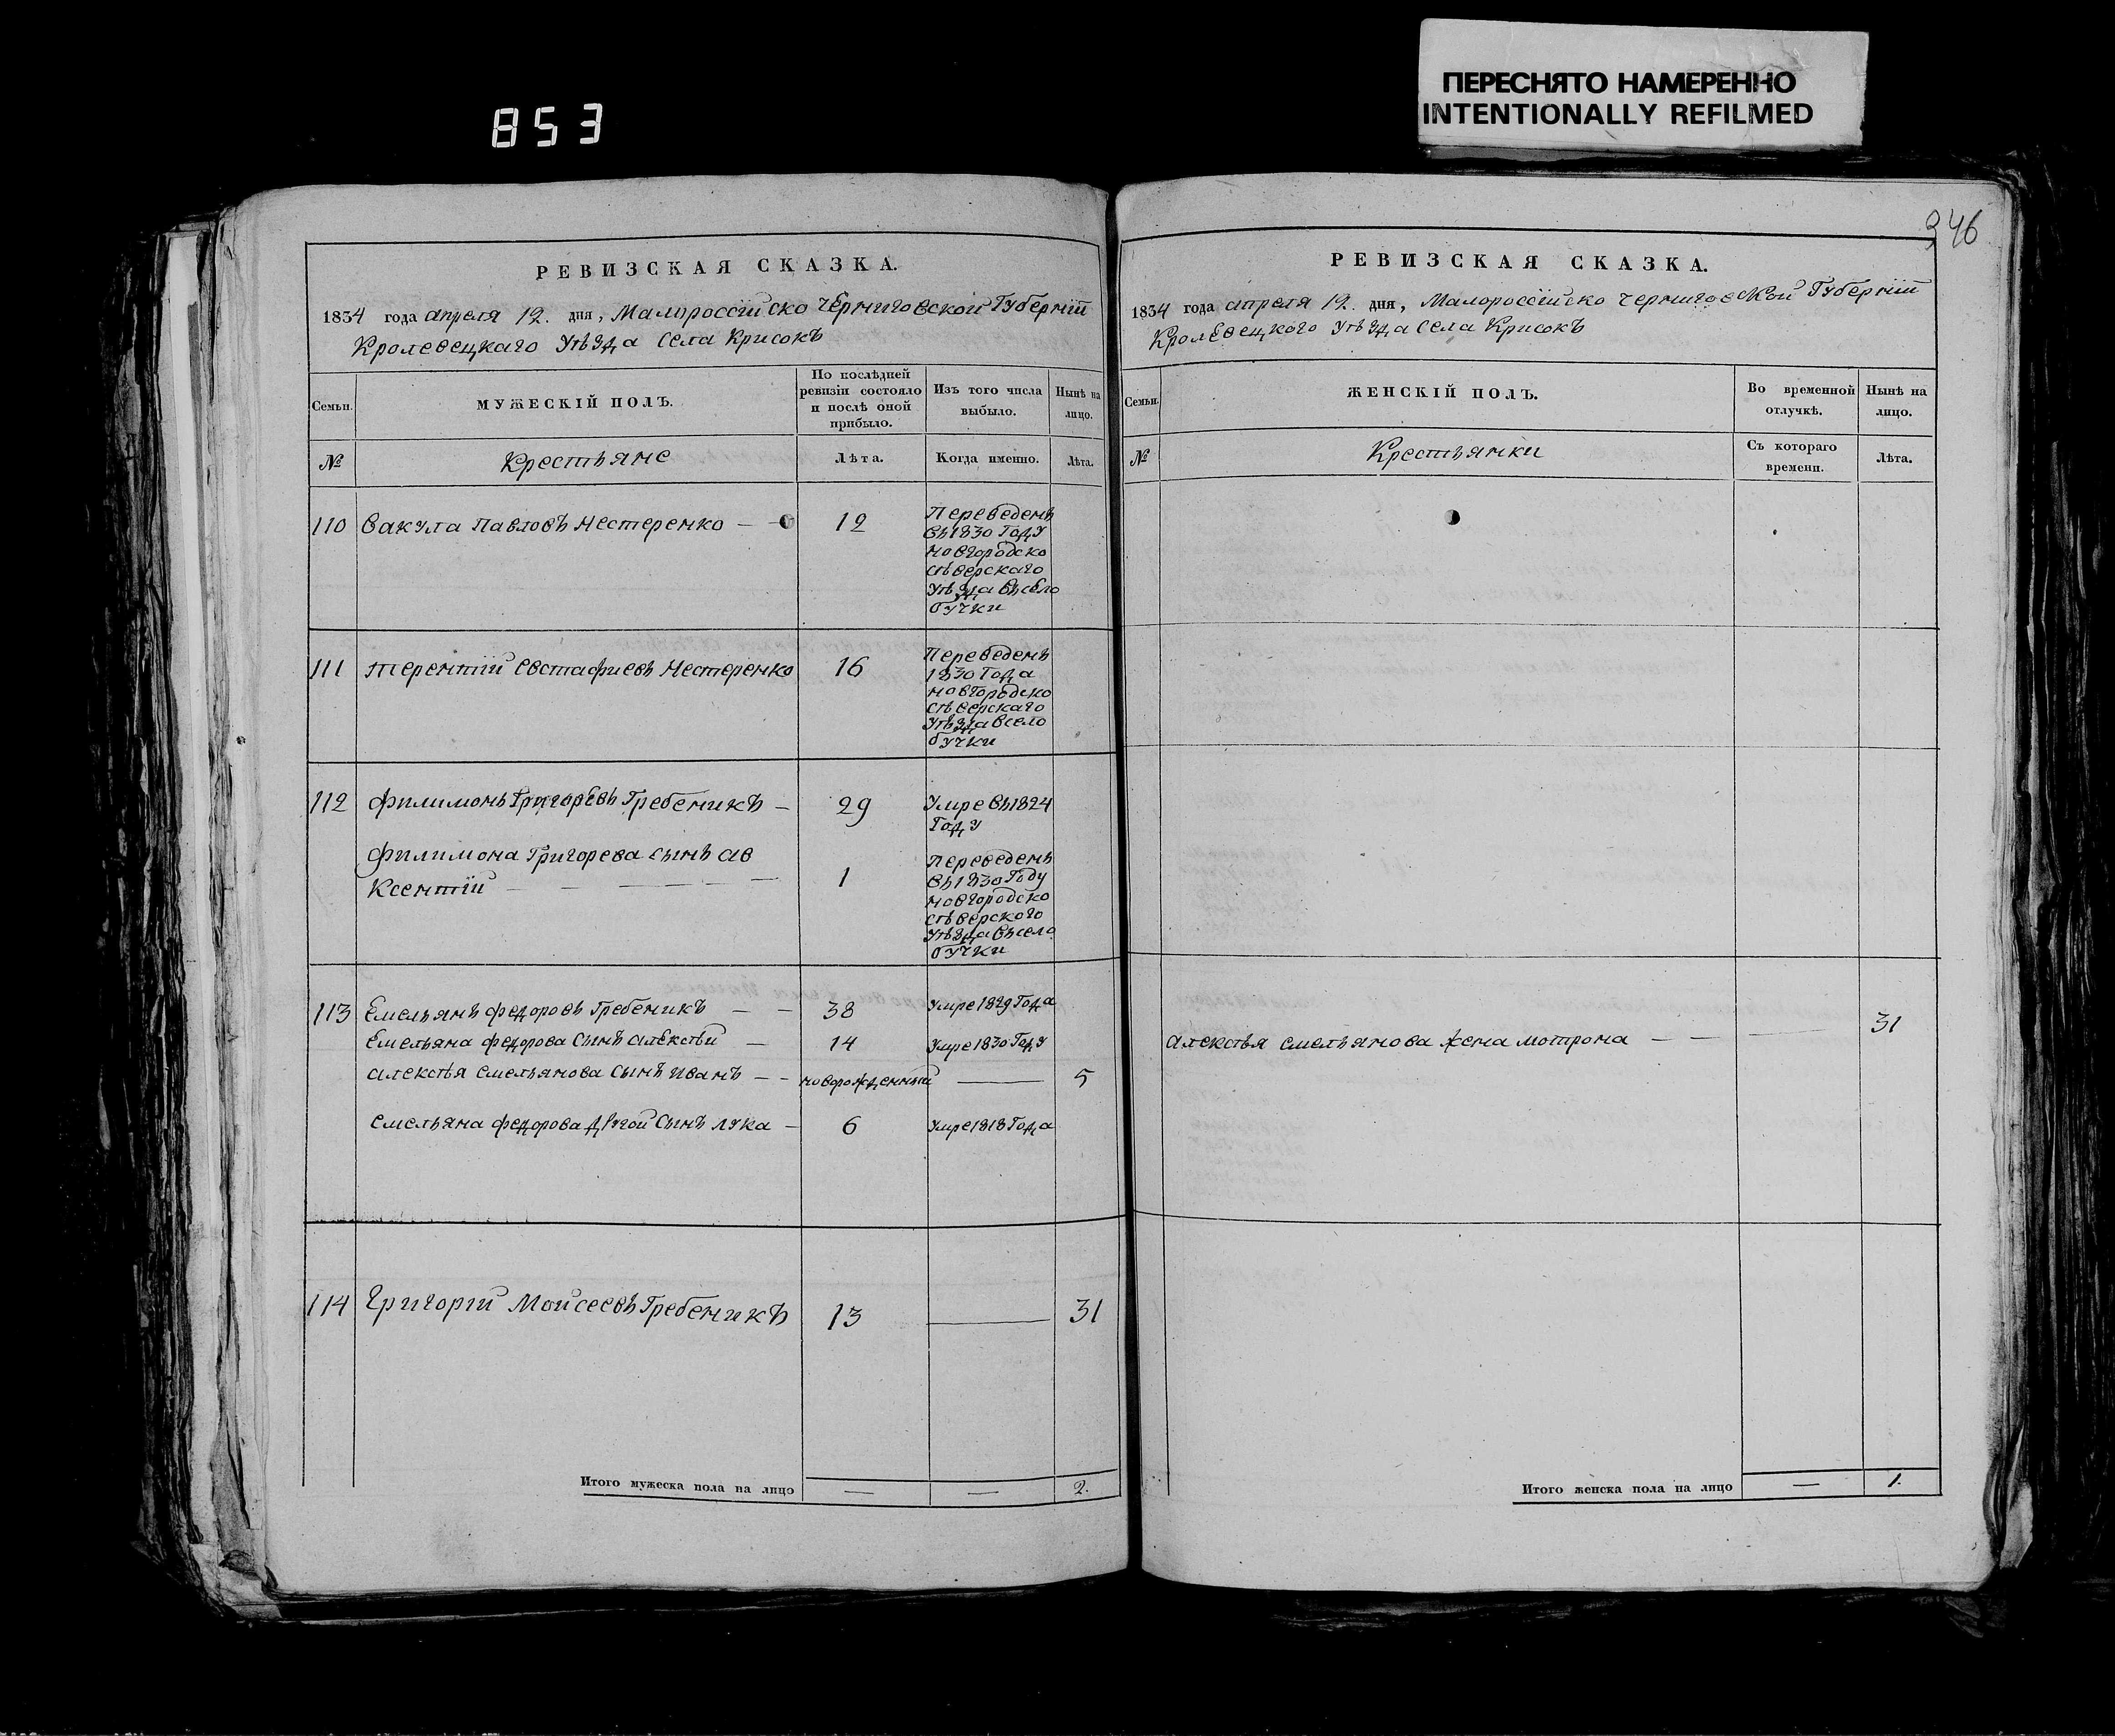 853
ПЕРЕСНЯТО НАМЕРЕННО
INTENTIONALLY REFILMED
РЕВИЗСКАЯ СКАЗКА.
1834 года апреля 12. дня, Малороссійско Черниговской Губерніи
Кролевецкаго Уѣзда села Крисокъ
Семьи.
МУЖЕСКІЙ ПОЛЪ.
По послѣдней
ревизіи состояло
и послѣ оной
прибыло.
Изъ того числа
выбыло.
Нынѣ на
лицо.
№
Крестьяне
Лѣта.
Когда именно.
Лѣта.
110 Вакула Павловъ Нестеренко — — 12
Переведенъ
въ 1830 Году
новгородско
сѣверскаго
уѣзда въ село
бучки
111 Терентій Евстафиевъ Нестеренко 16
Переведенъ
1830 Года
новгородско
сѣверскаго
уѣзда всело
бучки
112 Филимонъ Григоревъ Гребеникъ — 29
Умре въ 1824
Году
Филимона Григорева сынъ ав
ксентій — — — — — 1
Переведенъ
въ 1830 Году
новгородско
сѣверского
уѣзда въ село
бучки
113 Емельянъ федоровъ Гребеникъ — — 38 Умре 1829 Года
Емельяна федорова Сынъ алексѣй — 14 Умре 1830 Году
алексѣя емельянова Сынъ иванъ — — новорожденный — 5
емельяна федорова другой Сынъ лука — 6 Умре 1818 Года
114 Григорій Моисеевъ Гребеникъ 13 — 31
Итого мужеска пола на лицо — — 2.
346
РЕВИЗСКАЯ СКАЗКА.
1834 года апреля 12. дня, Малороссійско черниговской Губерніи
Кролевецкого Уѣзда села Крисокъ
Семьи.
ЖЕНСКІЙ ПОЛЪ.
Во временной
отлучкѣ.
Нынѣ на
лицо.
№
Крестьянки
Съ котораго
времени.
Лѣта.
алексѣя емельянова жена мотрона — — — 31
Итого женска пола на лицо — 1.